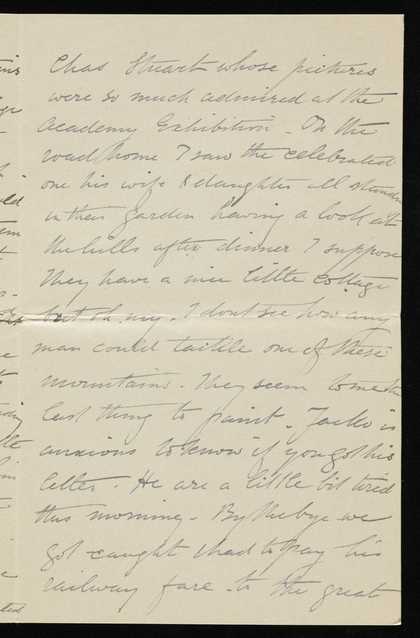 Chas Stuart whose pictures
were so much admired at the
Academy Exhibition. On the
road home I saw the celebrated
one his wife & daughter all standing
in their garden having a look at
the hills after dinner I suppose
They have a nice little cottage
but oh my. I dont see how any
man could tackle one of these
mountains. They seem to me the
last thing to paint. Jacko is
anxious to know if you got his
letter. He are a little bit tired
this morning. By the bye we
got caught & had to pay his
railway fare. to the great